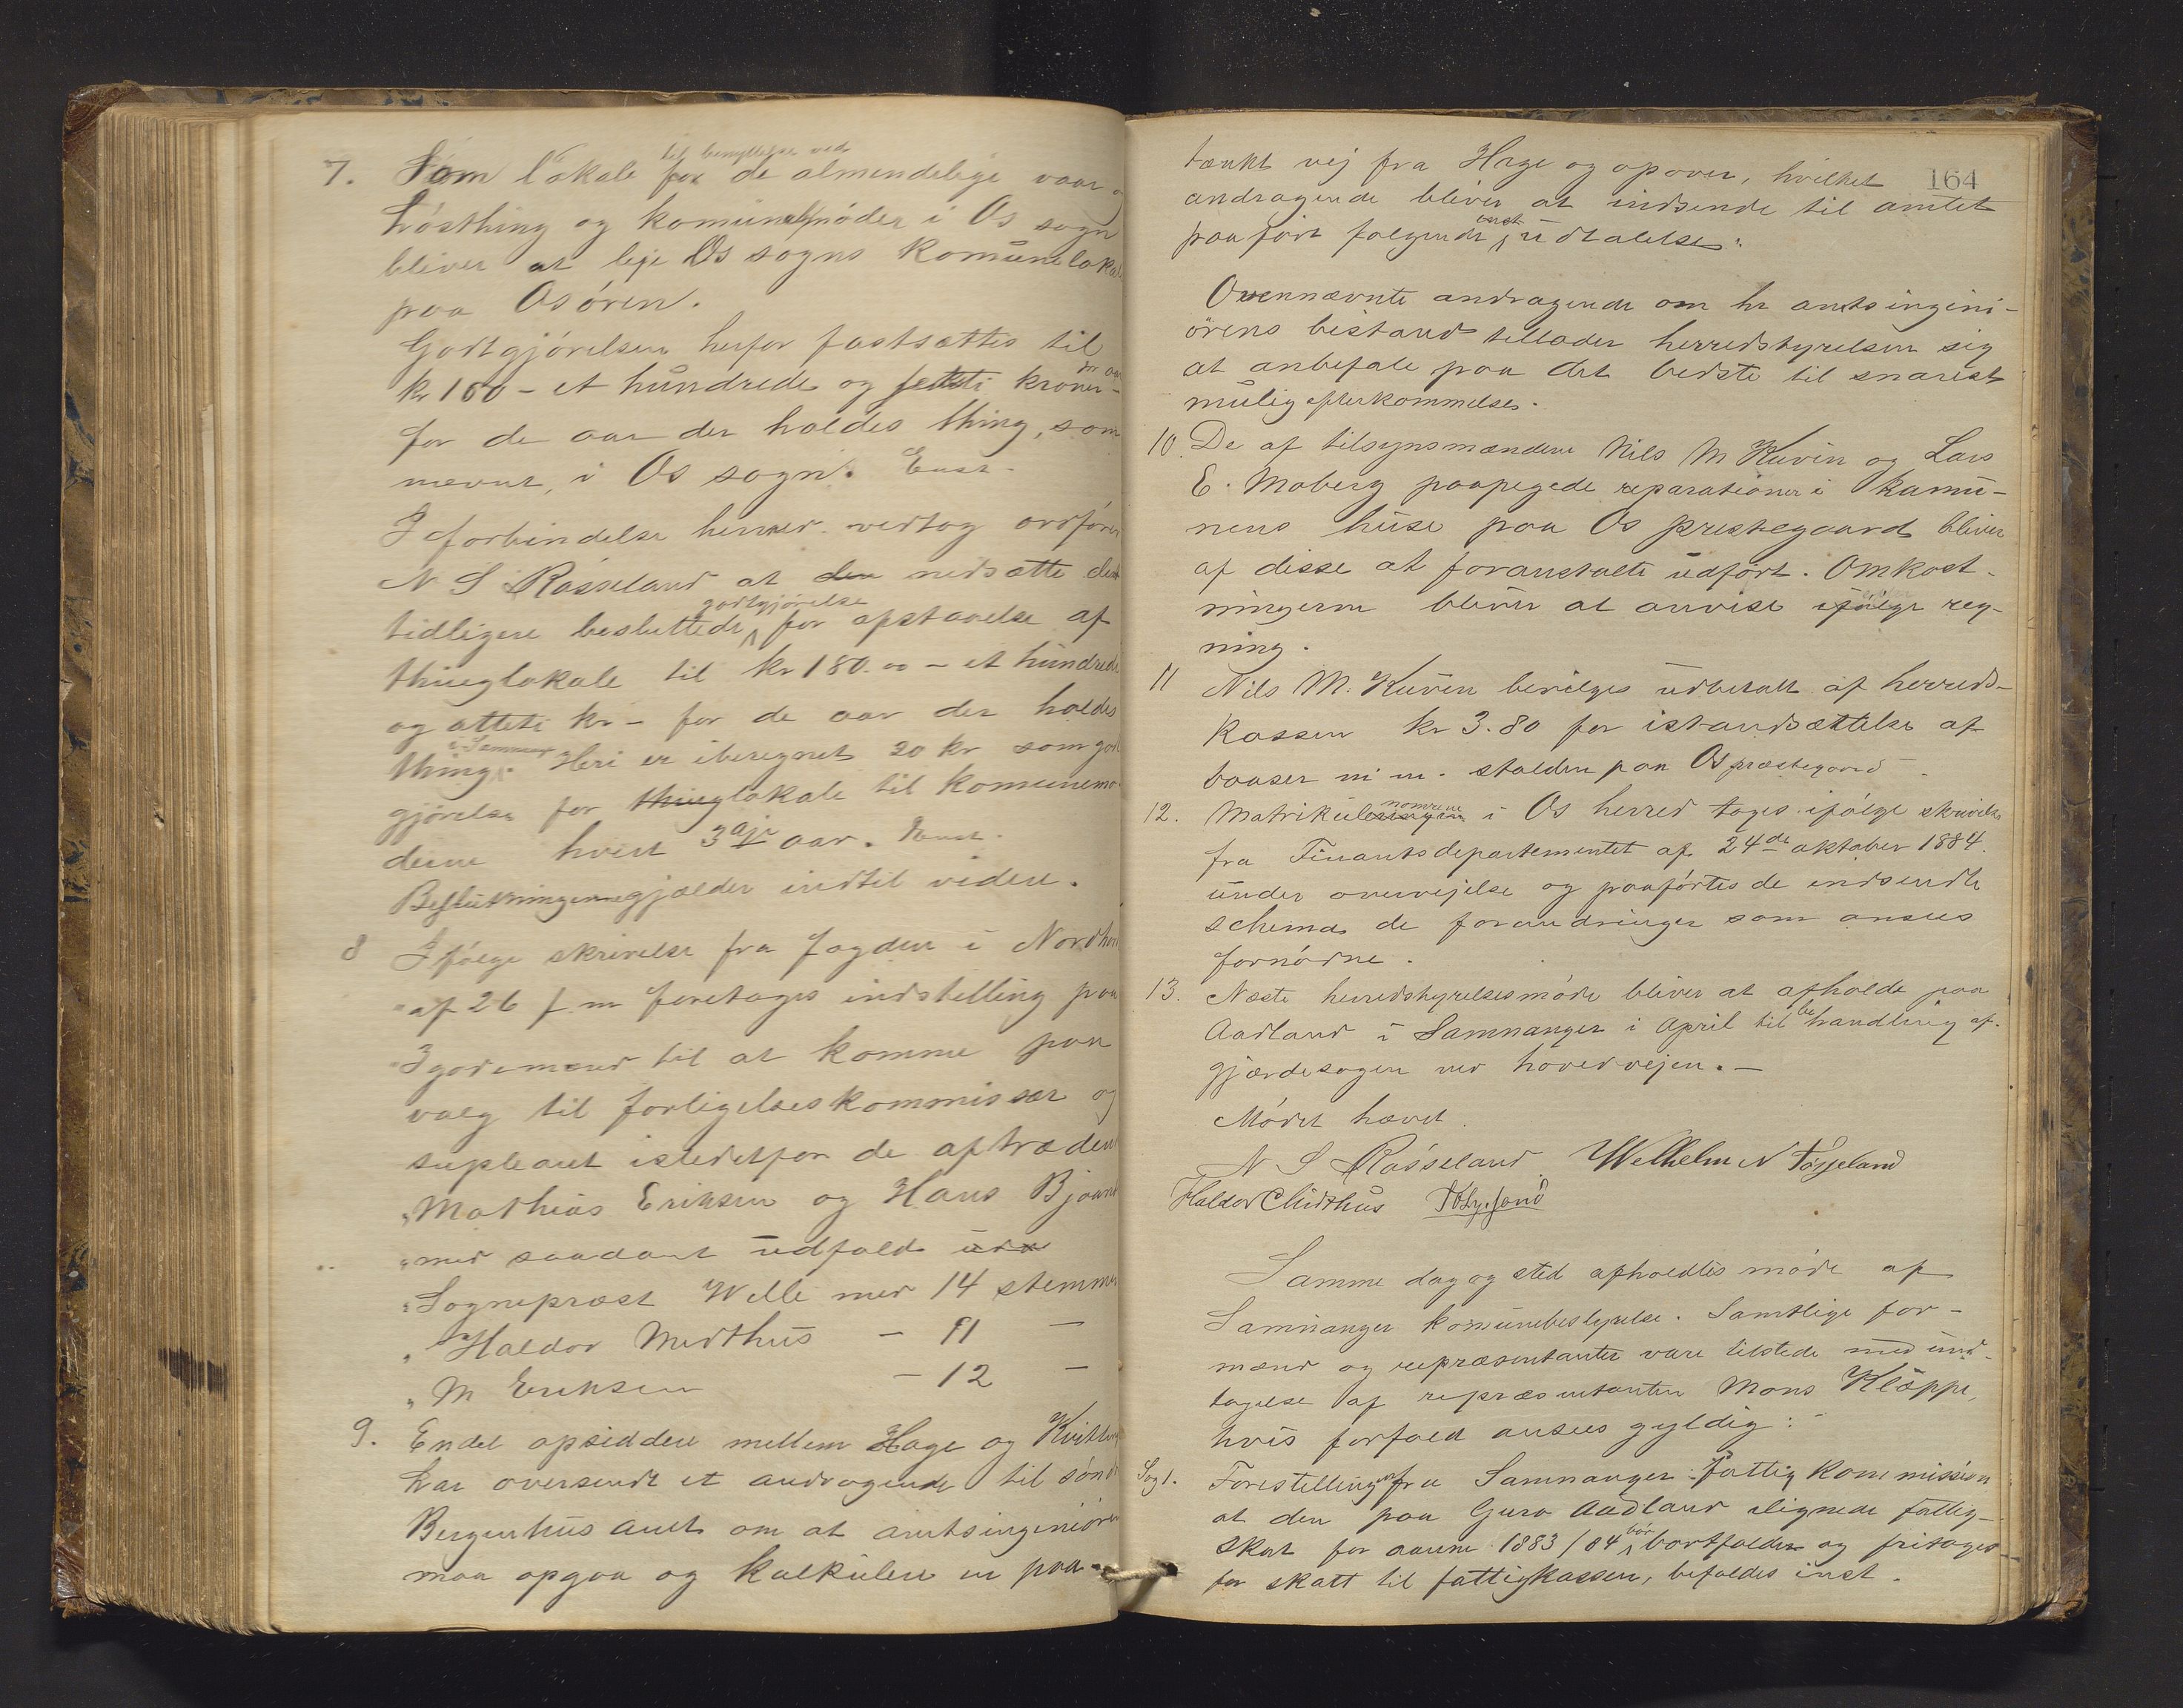 til benyttelse ved
7. Som lokale for de almendelige vaar o
hósthing og komunemóder i Os sogn
bliver at leje Os sogns Komunelokal
paa Osóren.
Godtgjórelsen herfor fastsættes til
kr 160 – et hundrede og seksti kroner –
for de aar der holdes thing, som
nevnt, i Os sogn. Enst.
I forbindelse hermed vedtog ordfórer
N S Rósseland at den nedsætte den
godtgjórelse
tidligere besluttede for opstavelse af
thinglokale til kr 180.00 – et hundrede
og otteti kr – for de aar der holdes
i Samnanger
thing. Heri er iberegnet 20 kr som godt
gjórelse for thinglokale til komunemó
derne hvert 3dje aar. Enst.
Beslutningerne gjælder indtil videre.
8 Ifólge skrivelse fra fogden i Nordhor
af 26 f. m foretoges indstilling paa
3 godemænd til at komme paa
valg til forligelseskommissær og
supleant istedetfor de aftræden
Mathias Eriksen og Hans Bjaana
med saadant udfald
Sognepræst Welle med 14 stemmer
" Haldor Midthus – 11 –
" M Eriksen – 12 –
9. Endel opsiddere mellem Hage og Kvitt
har oversendt et andragende til sóndr
Bergenhus amt om at amtsingenióren
maa opgaa og kalkulere en paa-
164
tænkt vej fra Hage og opover, hvilket
andragende bliver at indsende til amtet
enst
paafórt folgende udtalelse:
Ovennævnte andragende om hr amtsingeni-
órens bistand tillader herredstyrelsen sig
at anbefale paa det bedste til snarest
mulig efterkommelse.
10. De af tilsynsmændene Nils M Kuven og Lars
E. Moberg paapegede reparationer i komu-
nens huse paa Os prestegaard bliver
af disse at foranstalte udfórt. Omkost-
ningerne bliver at anvise ifólge reg-
ning.
11 Nils M. Kuven bevilges udbetalt af herreds-
kassen kr 3.80 for istandsættelse af
baaser m. m. stalden paa Os præstegaard
12. Matrikulnomrene i Os herred toges ifólge skrivelse
fra Finantsdepartementet af 24de oktober 1884.
under overvejelse og paafórtes de indsendte
schema de forandringer som ansees
fornódne.
13. Næste herredstyrelsesmóde bliver at afholde paa
Aadland i Samnanger i April til behandling af
gjærdesagen ved hovedvejen. –
Módet hævet.
N S Rósseland Welhelm N Tósseland
Haldor C Midthus
Samme dag og sted afholdtes móde af
Samnanger komunebestyrelse. Samtlige for-
mænd og repræsentanter vare tilstede med und-
tagelse af repræsentanten Mons Kleppe,
hvis forfald ansees gyldig:
Sag 1. Forestilling om fra Samnanger fattig kommission
at den paa Guro Aadland ilignede fattig-
skat for aarene 1883/84 bór bortfalder og fritages
for skatt til fattigkassen, bifaldes enst.